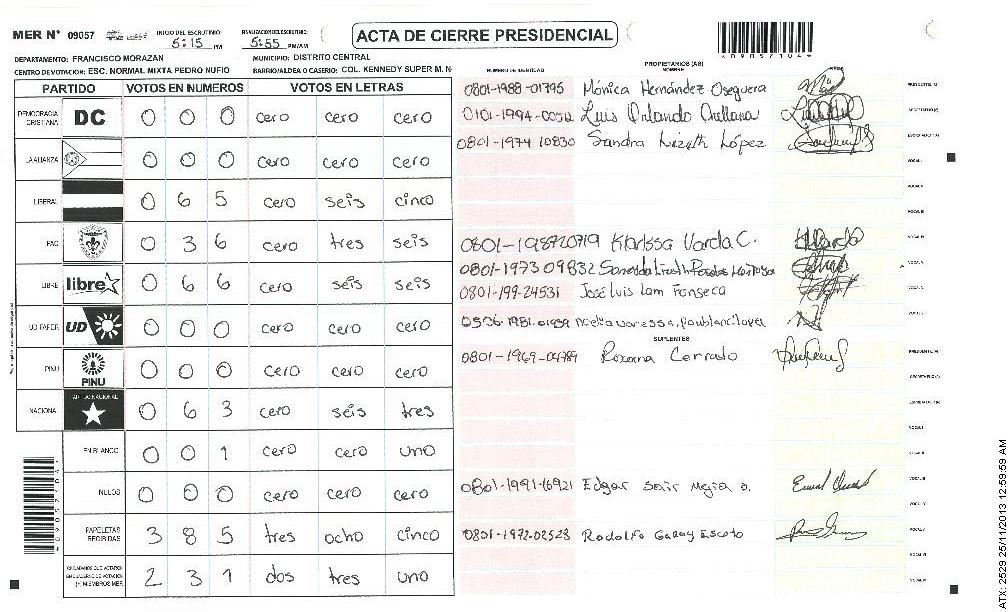 MER N° 09057
INICIO DEL ESCRUTINIO:
5:15 PM
FINALIZACION DEL ESCRUTINIO:
5:55 PM/AM
ACTA DE CIERRE PRESIDENCIAL
DEPARTAMENTO: FRANCISCO MORAZAN
MUNICIPIO: DISTRITO CENTRAL
CENTRO DE VOTACION: ESC. NORMAL MIXTA PEDRO NUFIO
BARRIO/ALDEA O CASERIO: COL. KENNEDY SUPER M. N
PARTIDO VOTOS EN NUMEROS VOTOS EN LETRAS
DEMOCRACIA CRISTIANA DC 0 0 0 cero cero cero
LA ALIANZA 0 0 0 cero cero cero
LIBERAL 0 6 5 cero seis cinco
PAC 0 3 6 cero tres seis
LIBRE libre 0 6 6 cero seis seis
UD FAPER UD 0 0 0 cero cero cero
PINU PINU 0 0 0 cero cero cero
NACIONAL PARTIDO NACIONAL 0 6 3 cero seis tres
EN BLANCO 0 0 1 cero cero uno
NULOS 0 0 0 cero cero cero
PAPELETAS RECIBIDAS 3 8 5 tres ocho cinco
CIUDADANOS QUE VOTARON EN CUADERNO DE VOTACION (+) MIEMBROS MER 2 3 1 dos tres uno
NUMERO DE IDENTIDAD
PROPIETARIOS (AS)
NOMBRE
FIRMA
0801-1988-01795 Mónica Hernández Oseguera PRESIDENTE (A)
Luis Orlando Orellana SECRETARIO (A)
0801-1974 10830 Sandra Lizeth López ESCRUTADOR (A)
VOCAL I
VOCAL II
VOCAL III
0801-198720719 Klarissa Varela C. VOCAL IV
0801-1973 09832 VOCAL V
0801-199-24531 José Luis Lam Fonseca
SUPLENTES
0801-1969-04789 Roxana Cerrato PRESIDENTE (A)
SECRETARIO (A)
ESCRUTADOR (A)
VOCAL I
VOCAL II
0801-1991-16921 Edgar Sair Mejia o. VOCAL III
VOCAL IV
0801-1972-02528 Rodolfo Garay Escoto VOCAL V
VOCAL VI
*09057104*
ATX: 2529 25/11/2013 12:59:59 AM